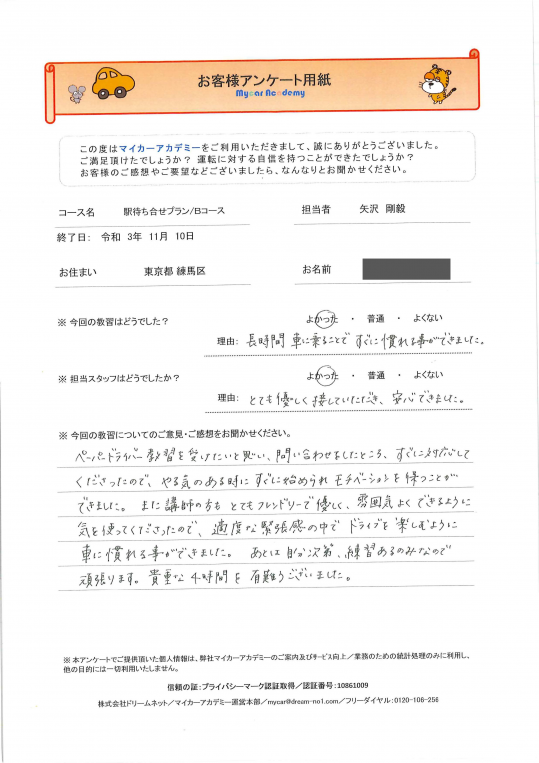 お客様アンケート用紙
Mycar Academy
この度はマイカーアカデミーをご利用いただきまして、誠にありがとうございました。
ご満足頂けたでしょうか？ 運転に対する自信を持つことができたでしょうか？
お客様のご感想やご要望などございましたら、なんなりとお聞かせください。
コース名 駅待ち合せプラン/Bコース 担当者 矢沢 剛毅
終了日: 令和 3年 11月 10日
お住まい 東京都 練馬区 お名前
※ 今回の教習はどうでした？ よかった ・ 普通 ・ よくない
理由: 長時間 車に乗ることで すぐに慣れる事ができました。
※ 担当スタッフはどうでしたか？ よかった ・ 普通 ・ よくない
理由: とても優しく接していただき、安心できました。
※ 今回の教習についてのご意見・ご感想をお聞かせください。
ペーパードライバー教習を受けたいと思い、問い合わせをしたところ、すぐに対応して
くださったので、やる気のある時にすぐに始められ モチベーションを保つことが
できました。 また講師の方も とてもフレンドリーで優しく、雰囲気よくできるように
気を使ってくださったので、適度な緊張感の中で ドライブを楽しむように
車に慣れる事ができました。 あとは自分次第、練習あるのみなので
頑張ります。貴重な4時間を有難うございました。
※ 本アンケートでご提供頂いた個人情報は、弊社マイカーアカデミーのご案内及びサービス向上／業務のための統計処理のみに利用し、
他の目的には一切利用いたしません。
信頼の証:プライバシーマーク認証取得／認証番号:10861009
株式会社ドリームネット／マイカーアカデミー運営本部／mycar@dream-no1.com／フリーダイヤル:0120-106-256